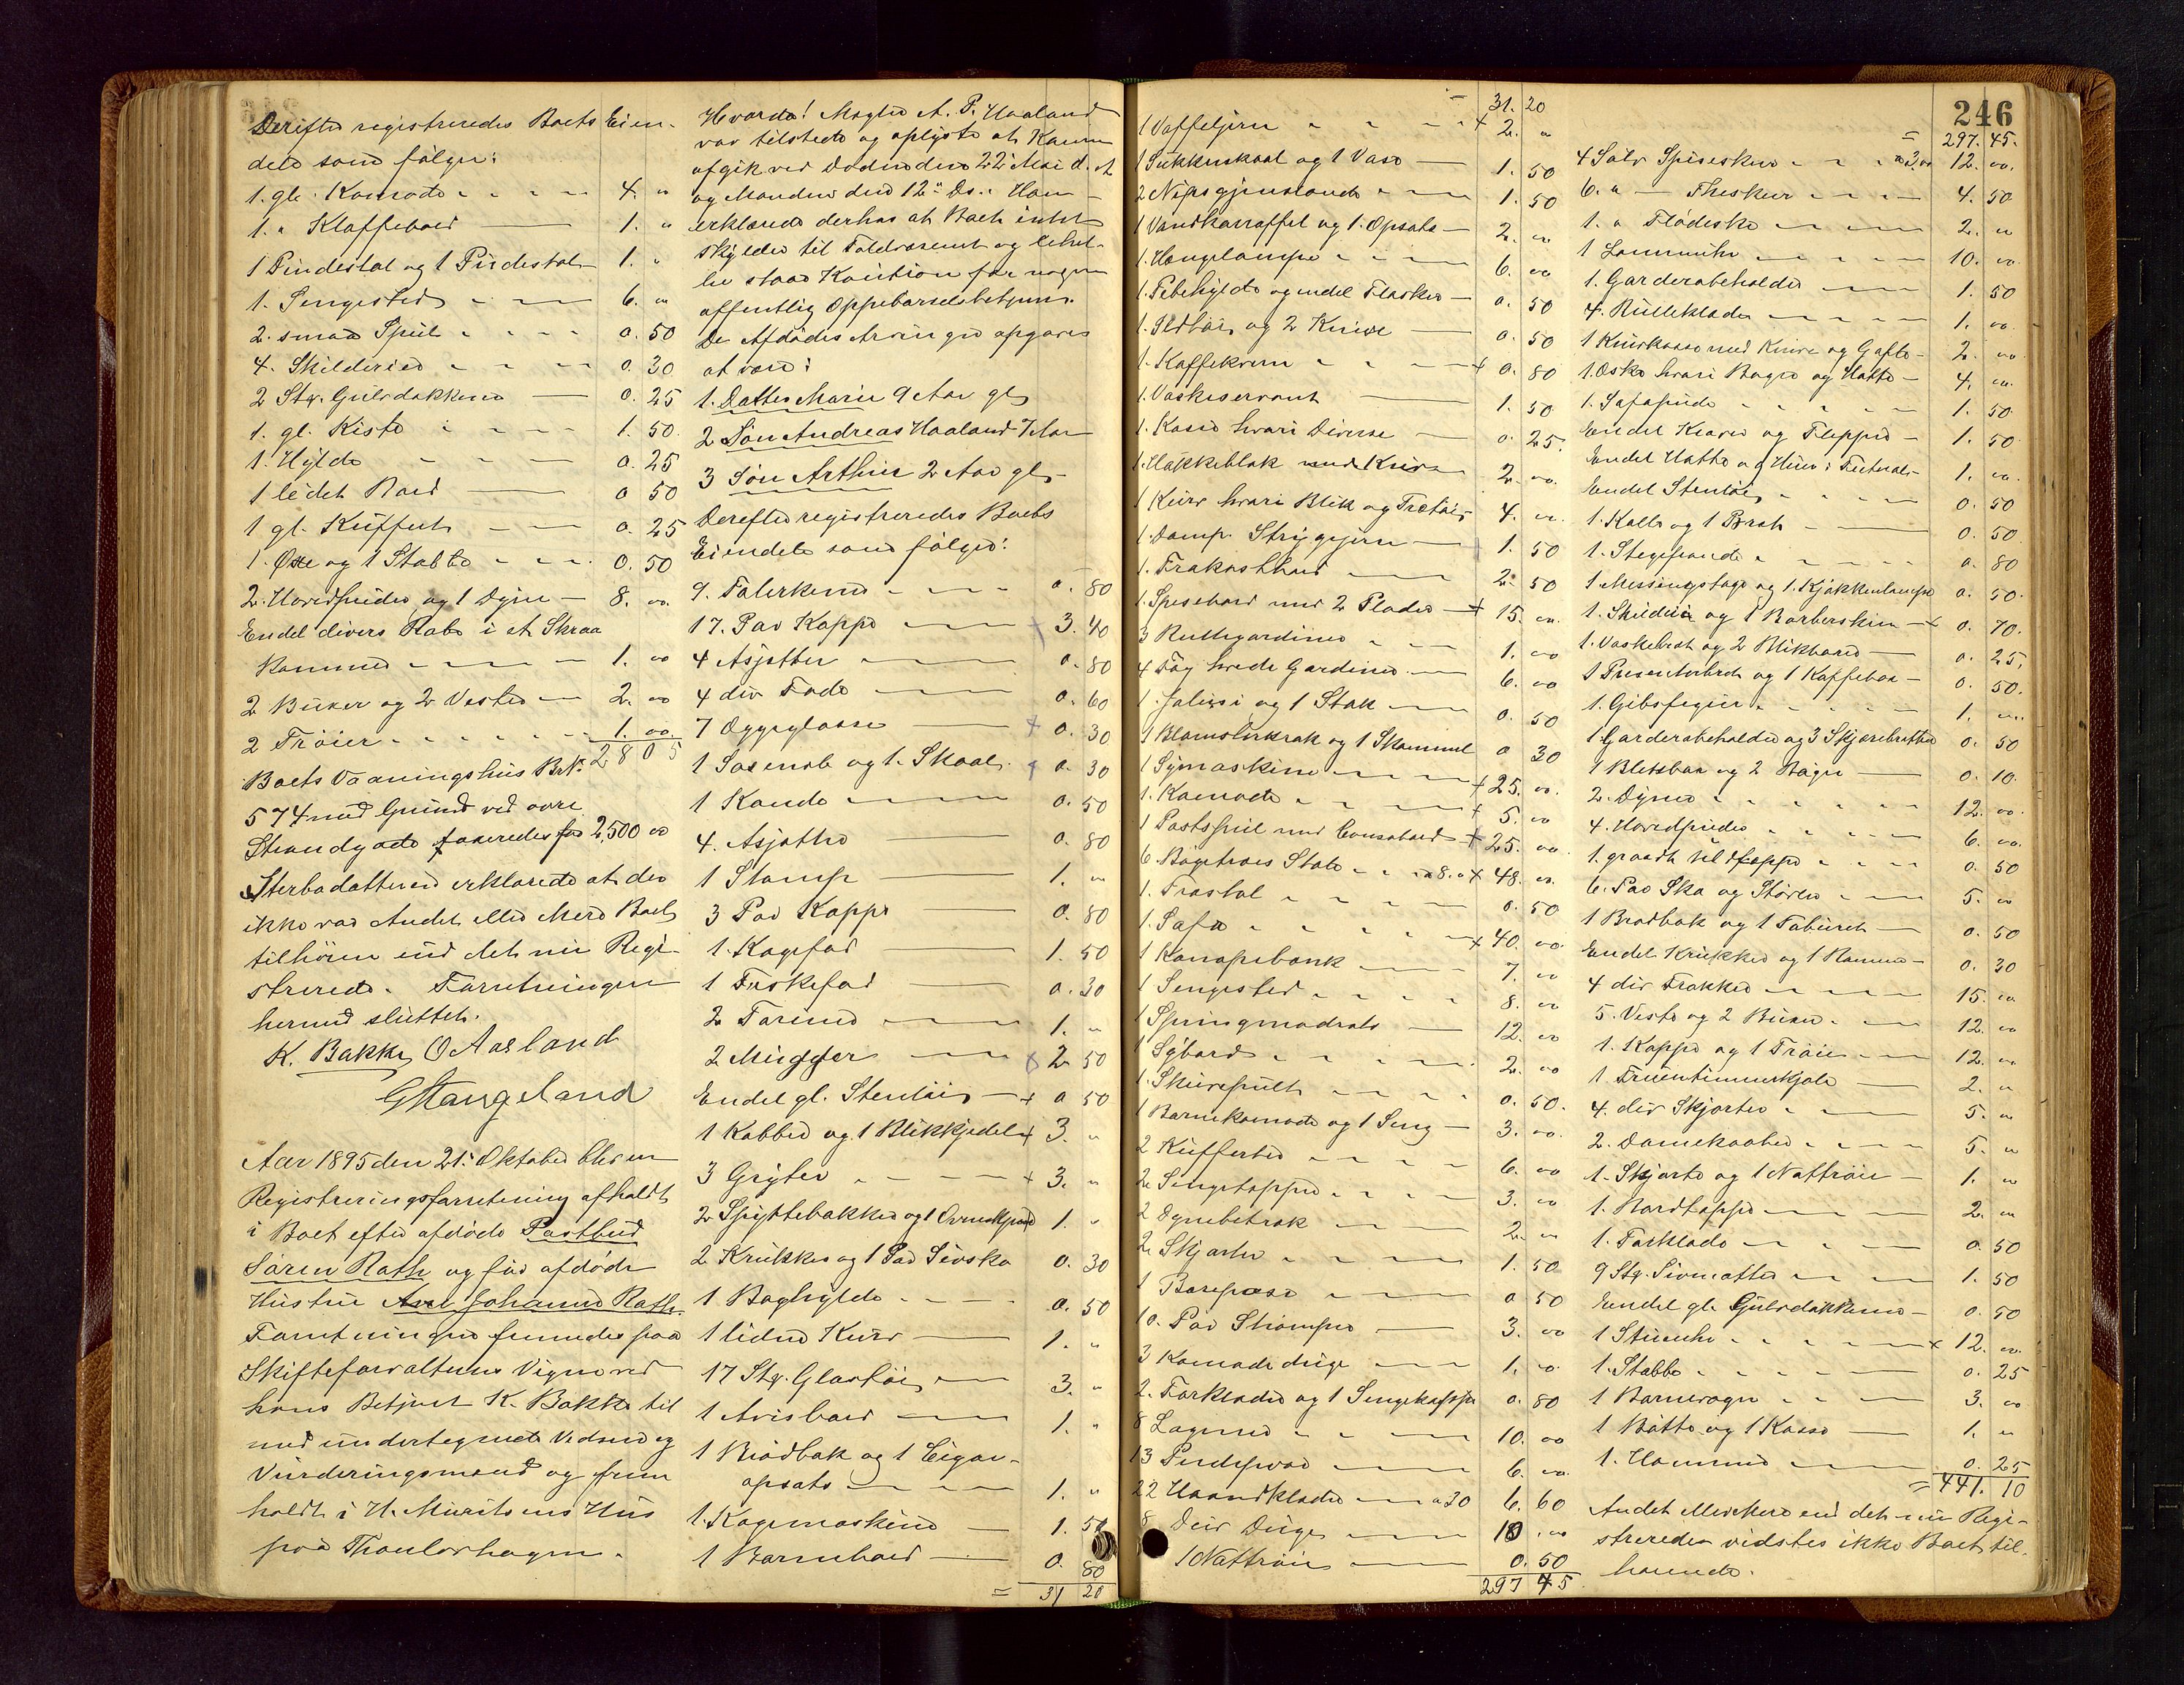 Derefter registreredes Boets Eien-
dele som følger:
1. gl. Komode 4. "
1. " Klaffebord 1. "
1 Pindestol og 1 Pudestol 1. "
1. Sengested 6. "
2. smaa Speil 0. 50
4. Skilderier 0. 30
2 Stk. Gulvdækkener 0. 25
1. gl. Kiste 1. 50
1. Hylde 0. 25
1 lidet Bord 0 50
1 gl. Kuffert 0. 25
1. Øxe og 1 Stabbe 0. 50
2. Hovedpuder og 1 Dyne 8. oo
Endel divers Rabs i et Skraa
kammer 1. oo
2 Buxer og 2 Veste 2. oo
2 Trøier 1. oo
28 05
Boets Vaaningshus Br.No.
574 med Grund ved øvre
Strandgade taxeredes for 2,500 oo
Sterbodatteren erklærede at der
ikke var Andet eller Mere Boet
tilhørende end det nu Regi-
strerede. Forretningen
hermed sluttet.
K. Bakke O Aasland
G Stangeland
Aar 1895 den 21. Oktober blev en
Registreringsforretning afholdt
i Boet efter afdøde Postbud
Søren Rath og før afdøde
Hustru Johanne Rath.
Forretningen fremmedes paa
Skifteforvalterens Vegne ved
hans Betjent K. Bakke til
med undertegnede Vidner og
Vurderingsmænd og frem
holdt i H. Muritsens Hus
paa Thaulovhagen.
Hvorda! Mægler A. P. Haaland
var tilstede og oplyste at Konen
afgik ved Døden den 22 Mai d. A
og Manden den 12te Ds. Han
erklærede derhos at Boet intet
skylder til Toldvæsenet og lehel-
ler staar Kaution for nogen
offentlig Oppebørselsbetjent.
De Afdødes Arvinger opgaves
at være:
1. Datter Marie 9 Aar gl
2 Søn Andreas Haaland 7 Aar
3 Søn Arthur 2 Aar gl
Derefter registreredes Boets
Eiendele som følger:
9. Talerkener 0. 80
17. Par Kopper 3. 40
4 Asjetter 0. 80
4 div Fade 0. 60
7 Æggeglasse 0. 30
1 Sosenæb og 1. Skaal 0. 30
1 Kande 0. 50
4. Asjetter 0. 80
1 Stamp 1. "
3 Par Kopper 0. 80
1. Kagefad 1. 50
1 Fiskefad 0. 30
2 Tariner 1. "
2 Mugger 2 50
Endel gl. Stentøi 0 50
1 Kobber og 1 Blikkjedel 3. "
3 Gryter 3. "
2 Spyttebakker og 1 1. "
2 Krukker og 1 Par Sivsko 0. 30
1 Boghylde 0. 50
1 liden Kurv 1. "
17 Stk. Glastøi 3. "
1 Avisbord 1. "
1 Brødbak og 1 Cigar-
opsats 1. "
1. Kagemaskine 1. 50
1 Barnebord 0. 80
= 31 20
246
31. 20
1 Vaffeljern 2. "
1 Sukkerskaal og 1 Vase 1. 50
2 Nipsgjenstande 1. 50
1 Vandkarraffel og 1. Opsats 2. oo
1. Hængelampe 6. oo
1. Pibehylde og endel Flasker 0. 50
1. Ildtøi og 2 Knive 0. 50
1. Kaffekværn 0. 80
1. Vaskeservant 1. 50
1. Kasse hvori Diverse 0. 25.
1. Hakkeblok med Kniv 2. oo
1 Kurv hvori Blik og Trætøi 4. oo
1. Damp. Strygejern 1. 50
1. Frakosthus 2. 50
1. Spisebord med 2 Plader 15. oo
3 Rullegardiner 1. oo
4 Fag hvide Gardiner 6. oo
1. Jalusi og 1 Stok 0. 50
1 Blomsterkrak og 1 Skammel 0 30
1 Symaskine 25. oo
1. Komode 5. oo
1 Postspeil med Consolbord 25. oo
6. Bøgetræes Stole a 8. 48. oo
1. Træstol 0. 50
1. Sofa 40. oo
1 Kanapebænk 7. oo
1 Sengested 8. oo
1 Springmadrats 12. oo
1 Sybord 2. oo
1. Skurepult 0. 50.
1 Barnekomode og 1 Seng 3. oo
2 Kufferter 6. oo
2. Sengetepper 3. oo
2 Dynebetræk 2. oo
2. Skjorter 1. 50
1 Bærepose 0 50
10. Par Strømper 3. oo
3 Komode duge 1. oo
2. Forklæder og 1 Sengekappe 0. 80
8 Lagener 10. oo
13 Pudevaar 6. oo
22 Haandklæder a 30 6. 60
8 Deiv Duge 10. oo
1 Nattrøie 0. 50
297 45
= 297. 45.
4 Sølv Spiseskeer a 3. oo 12. oo.
6. " — Theskeer 4. 50
1. " Flødeske 2. "
1 Lommeuhr 10. oo
1. Garderobeholder 1. 50
4. Rulleklæder 1. oo
1 Knivkasse med Knive og Gafle 2. oo
1. Æske hvori Bøger og Hatte 4. oo
1. Sofapude 1. 50
Endel Kraver og Flipper 1. 50
Endel Hatte og Huer i Futteral 1. oo
Endel Stentøi 0. 50
1. Kolle og 1 Bræt 0. 50
1. Stegepande 0. 80
1 Messingstage og 1. Kjøkkenlampe 0. 50.
1. Skilderi og 1 Barberskrin 0. 70.
1. Vaskebræt og 2 Blikkarer 0. 25.
1 Presenterbræt og 1 Kaffebox 0. 50.
1. Gibsfigur 1. oo
1 Garderobeholder og 3 Skjærebretter 0. 50
1 Blekbox og 2 Bøger 0. 10.
2. Dyner 12. oo
4. Hovedpuder 6. oo
1. graadt uldteppe 0. 50
6. Par Sko og Støvler 5. oo
1 Brødbak og 1 Taburet 0. 50
Endel Krukker og 1 Ramme 0. 30
4 div Frakker 15. oo
5. Veste og 2 Buxer 12. oo
1. Kappe og 1 Trøie 12. oo
1 Fruentimmerkjole 2. "
4. div Skjorter 5. oo
2. Damekaaber 5. "
1. Skjorte og 1 Nattrøie 1. "
1. Bordteppe 2. oo
1. Forklæde 0. 50
9 Stk. Sivmatter 1. 50
Endel gl Gulvdækkener 0. 50
1 Stueuhr 12. oo
1. Stabbe 0. 25
1 Barnevogn 3. oo
1 Bøtte og 1 Kasse 1. "
1. Hammer 0. 25
= 441. 10
Andet eller Mere end det nu Regi-
strerede vidstes ikke Boet til-
hørende.